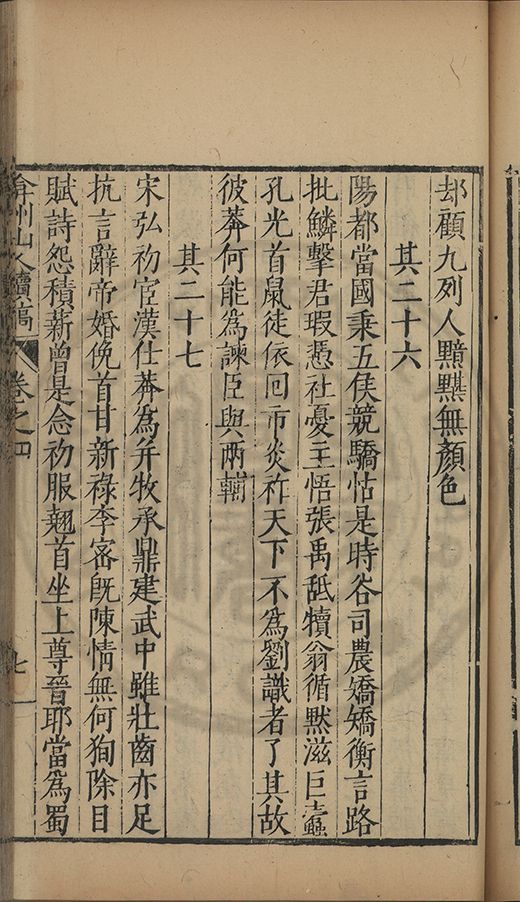 却顧九列人黯黮無顏色
其二十六
陽都當國秉五侯競驕怙是時谷司農嬌嬌衡言路
批鱗擊君瑕憑社憂王悟張禹舐犢翁循默滋巨蠹
孔光首鼠徒依回市炎祚天下不為劉識者了其故
彼莽何能為諫臣與兩輔
其二十七
宋弘初宦漢仕莽為并牧承鼎建武中雖壯齒亦足
抗言辭帝婚俛首甘新祿李密旣陳情無何狥除目
賦詩怨積薪曾是念初服翹首坐上尊晉耶當為蜀
弇州山人續稿 卷之四 七